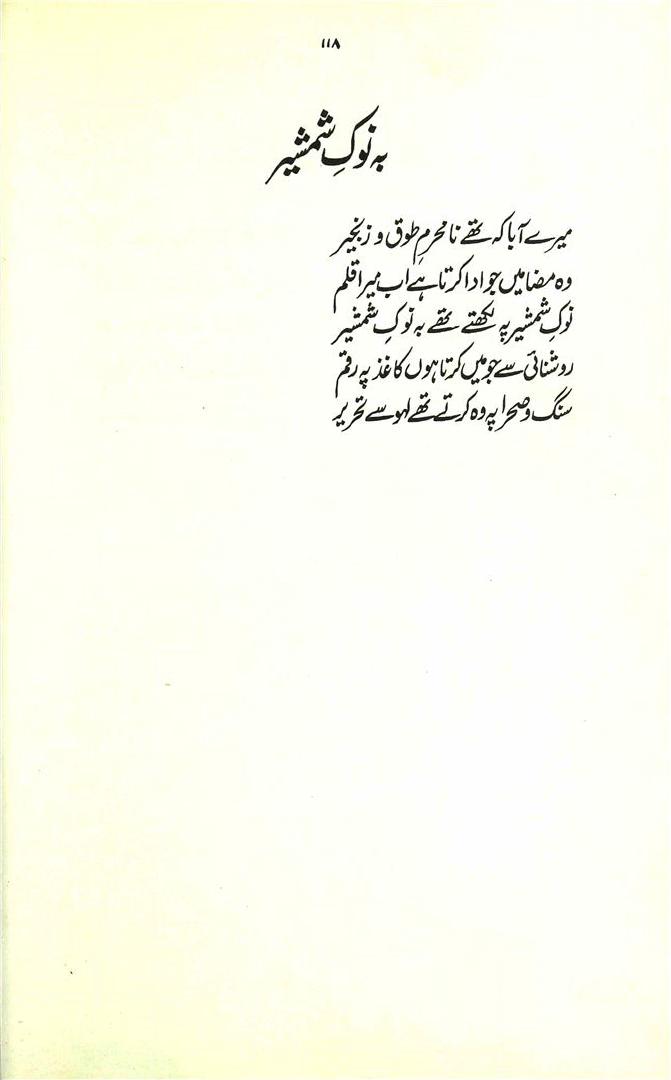 ۱۱۸
بہ نوکِ شمشیر
میرے آبا کہ تھے نامحرمِ طوق و زنجیر
وہ مضامیں جو ادا کرتا ہے اب میرا قلم
نوکِ شمشیر پہ لکھتے تھے بہ نوکِ شمشیر
روشنائی سے جو میں کرتا ہوں کاغذ پہ رقم
سنگ و صحرا پہ وہ کرتے تھے لہو سے تحریر